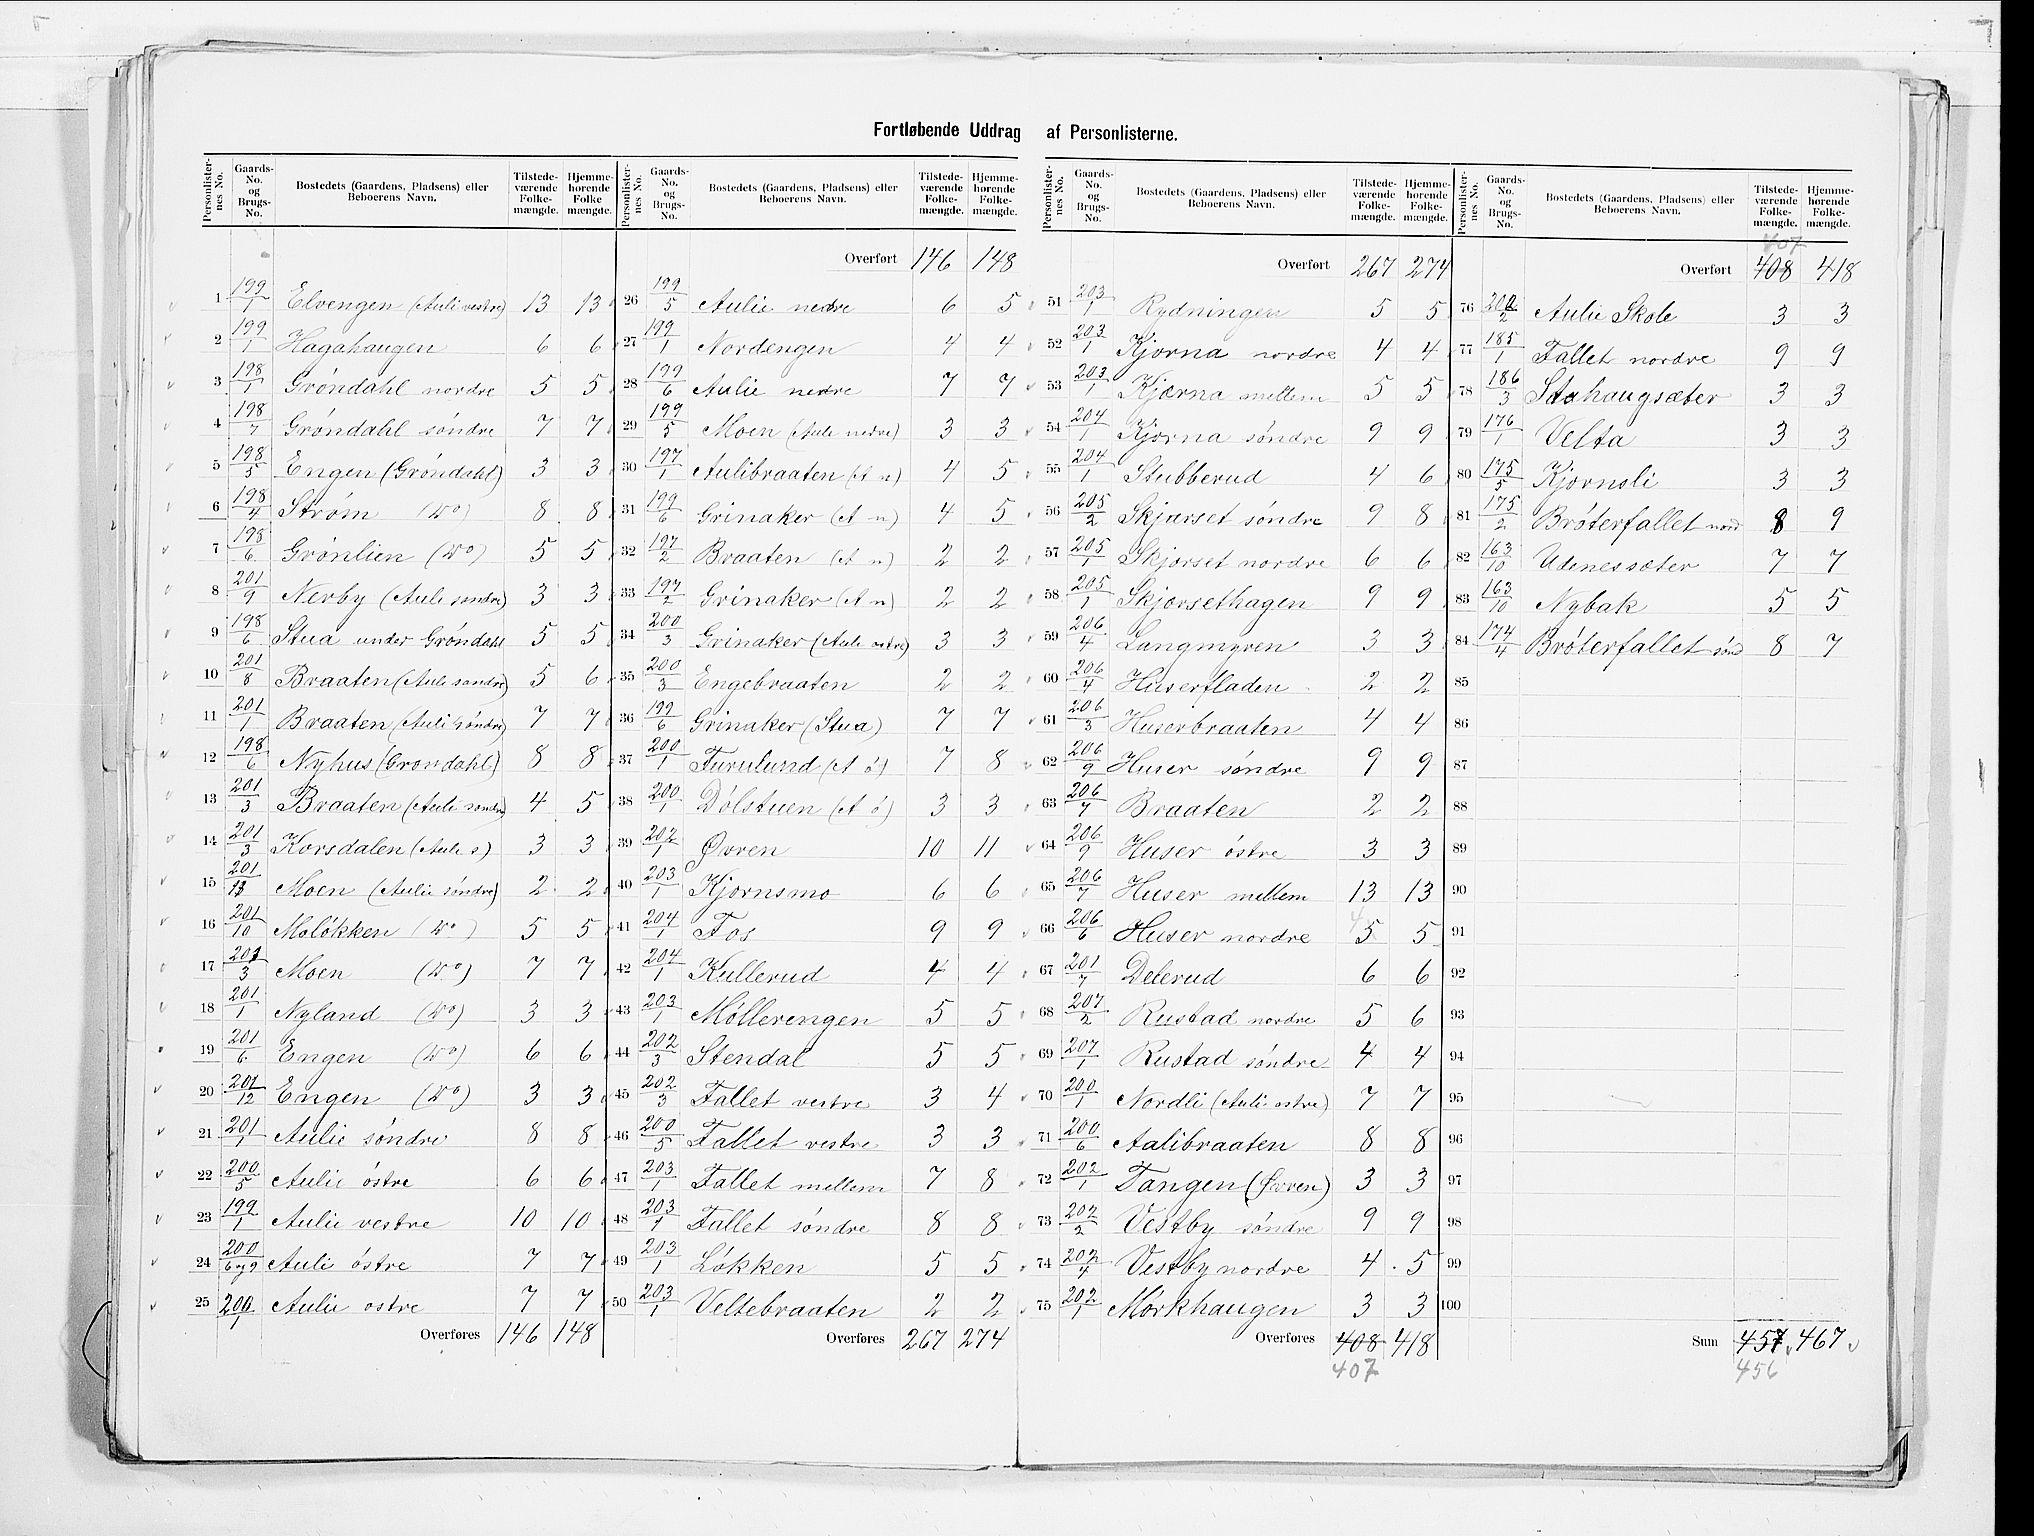 Fortløbende Uddrag af Personlisterne.
Personlister- nes No. | Gaards- No. og Brugs- No. | Bostedets (Gaardens, Pladsens) eller Beboerens Navn. | Tilstede- værende Folke- mængde. | Hjemme- hørende Folke mængde.
1 199/1 Elvengen (Auli vestre) 13 13
2 199/1 Hagahaugen 6 6
3 198/1 Grøndahl nordre 5 5
4 198/7 Grøndahl søndre 7 7
5 198/5 Engen (Grøndahl) 3 3
6 198/4 Strøm (Do) 8 8
7 198/6 Grønlien (Do) 5 5
8 201/9 Nerby (Auli søndre) 3 3
9 198/6 Stua under Grøndahl 5 5
10 201/8 Braaten (Auli søndre) 5 6
11 201/1 Braaten (Auli søndre) 7 7
12 198/6 Nyhus (Grøndahl) 8 8
13 201/3 Braaten (Auli søndre) 4 5
14 201/3 Korsdalen (Auli s) 3 3
15 201/13 Moen (Aulie søndre) 2 2
16 201/10 Moløkken (Do) 5 5
17 201/3 Moen (Do) 7 7
18 201/1 Nyland (Do) 3 3
19 201/6 Engen (Do) 6 6
20 201/12 Engen (Do) 3 3
21 201/1 Aulie søndre 8 8
22 200/5 Aulie østre 6 6
23 199/1 Aulie vestre 10 10
24 200/6 og 9 Auli østre 7 7
25 200/1 Aulie østre 7 7
Overføres 146 148
Personlister- nes No. | Gaards- No. og Brugs- No. | Bostedets (Gaardens, Pladsens) eller Beboerens Navn. | Tilstede- værende Folke- mængde. | Hjemme- hørende Folke- mængde.
Overført 146 148
26 199/5 Aulie nedre 6 5
27 199/1 Nordengen 4 4
28 199/6 Aulie nedre 7 7
29 199/5 Moen (Auli nedre) 3 3
30 197/1 Aulibraaten (A n) 4 5
31 199/6 Grinaker (A n) 4 5
32 197/2 Braaten (A n) 2 2
33 197/2 Grinaker (A n) 2 2
34 200/3 Grinaker (Auli østre) 3 3
35 200/3 Engebraaten 2 2
36 199/6 Grinaker (Stua) 7 7
37 200/1 Furulund (A ø) 7 8
38 200/1 Dølstuen (A ø) 3 3
39 202/1 Øvren 10 11
40 203/1 Kjørnsmo 6 6
41 204/1 Fos 9 9
42 204/1 Kullerud 4 4
43 203/1 Møllerengen 5 5
44 202/3 Stendal 5 5
45 202/3 Fallet vestre 3 4
46 200/5 Fallet vestre 3 3
47 203/1 Fallet mellem 7 8
48 203/1 Fallet søndre 8 8
49 203/1 Løkken 5 5
50 203/1 Veltebraaten 2 2
Overføres 267 274
Personlister- nes No. | Gaards- No. og Brugs- No. | Bostedets (Gaardens, Pladsens) eller Beboerens Navn. | Tilstede- værende Folke- mængde. | Hjemme- hørende Folke- mængde.
Overført 267 274
51 203/1 Rydningen 5 5
52 203/1 Kjørna nordre 4 4
53 203/1 Kjørna mellem 5 5
54 204/1 Kjørna søndre 9 9
55 204/1 Stubberud 4 6
56 205/2 Skjørset søndre 9 8
57 205/1 Skjørset nordre 6 6
58 205/1 Skjørsethagen 9 9
59 206/4 Langmyren 3 3
60 206/4 Huserfladen 2 2
61 206/3 Huserbraaten 4 4
62 206/9 Huser søndre 9 9
63 206/7 Braaten 2 2
64 206/9 Huser østre 3 3
65 206/7 Huser mellem 13 13
66 206/6 Huser nordre 4 5 5
67 201/7 Delerud 6 6
68 207/2 Rustad nordre 5 6
69 207/1 Rustad søndre 4 4
70 200/1 Nordli (Auli østre) 7 7
71 200/6 Aalibraaten 8 8
72 202/1 Tangen (Øvren) 3 3
73 202/2 Vestby søndre 9 9
74 202/4 Vestby nordre 4 5
75 202/1 Mørkhaugen 3 3
Overføres 408 418
407
Personlister- nes No. | Gaards- No. og Brugs- No. | Bostedets (Gaardens, Pladsens) eller Beboerens Navn. | Tilstede- værende Folke- mængde. | Hjemme- hørende Folke- mængde.
407
Overført 408 418
76 202/2 Aulie Skole 3 3
77 185/1 Fallet nordre 9 9
78 186/3 Stahaugsæter 3 3
79 176/1 Velta 3 3
80 175/5 Kjørnsli 3 3
81 175/2 Brøterfallet nord 8 9
82 163/10 Udenessæter 7 7
83 163/10 Nybak 5 5
84 174/4 Brøterfallet sønd 8 7
85
86
87
88
89
90
91
92
93
94
95
96
97
98
99
100
Sum 457 467
456